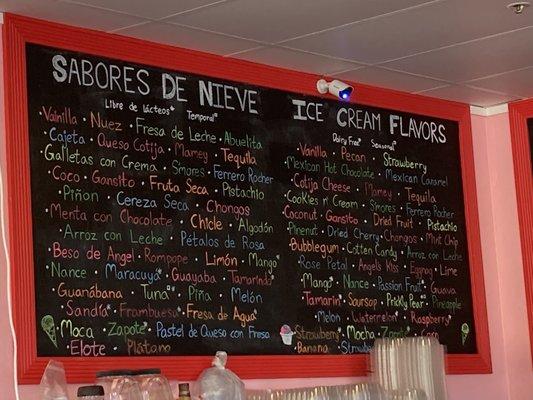 SABORES DE NIEVE
Libre de lácteos* Temporal°
·Vainilla ·Nuez ·Fresa de Leche ·Abuelita
·Cajeta ·Queso Cotija ·Mamey ·Tequila
·Galletas con Crema ·S'mores ·Ferrero Rocher
·Coco ·Gansito ·Fruta Seca ·Pistachio
·Piñon ·Cereza Seca ·Chongos
·Menta con Chocolate ·Chicle ·Algodón
·Arroz con Leche ·Pétalos de Rosa
·Beso de Angel ·Rompope ·Limón ·Mango*
·Nance ·Maracuya* ·Guayaba ·Tamarindo
·Guanábana ·Tuna* ·Piña ·Melón
·Sandía ·Frambuesa ·Fresa de Agua*
·Moca ·Zapote ·Pastel de Queso con Fresa
·Elote ·Plátano
ICE CREAM FLAVORS
Dairy Free* Seasonal°
·Vanilla ·Pecan ·Strawberry
·Mexican Hot Chocolate ·Mexican Caramel
·Cotija Cheese ·Mamey ·Tequila
·Cookies n' Cream ·S'mores ·Ferrero Rocher
·Coconut ·Gansito ·Dried Fruit ·Pistachio
·Pinenut ·Dried Cherry ·Chongos ·Mint Chip
·Bubblegum ·Cotton Candy ·Arroz con Leche
·Rose Petal ·Angels Kiss ·Eggnog ·Lime
·Mango* ·Nance ·Passion Fruit* ·Guava
·Tamarin ·Soursop ·Prickly Pear ·Pineapple
·Melon ·Watermelon ·Raspberry
·Strawberry ·Mocha ·Zapote
·Banana